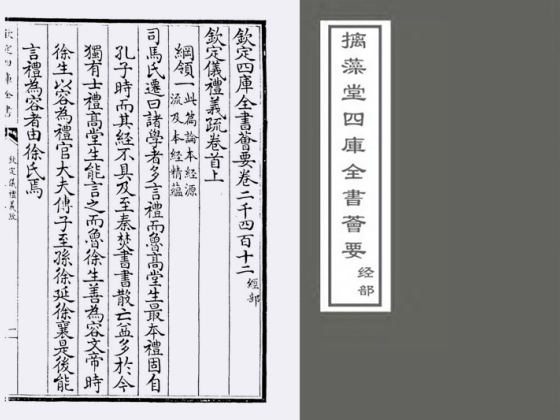 摛藻堂四庫全書薈要
经部
欽定四庫全書薈要卷二千四百十二 經部
欽定儀禮義疏卷首上
綱領一 此篇論本經源
流及本經精蘊
司馬氏遷曰諸學者多言禮而魯髙堂生最本禮固自
孔子時而其經不具及至秦焚書書散亡益多於今
獨有士禮髙堂生能言之而魯徐生善為容文帝時
徐生以容為禮官大夫傳子至孫徐延徐襄是後能
言禮為容者由徐氏焉
欽定四庫全書
欽定儀禮義疏
一